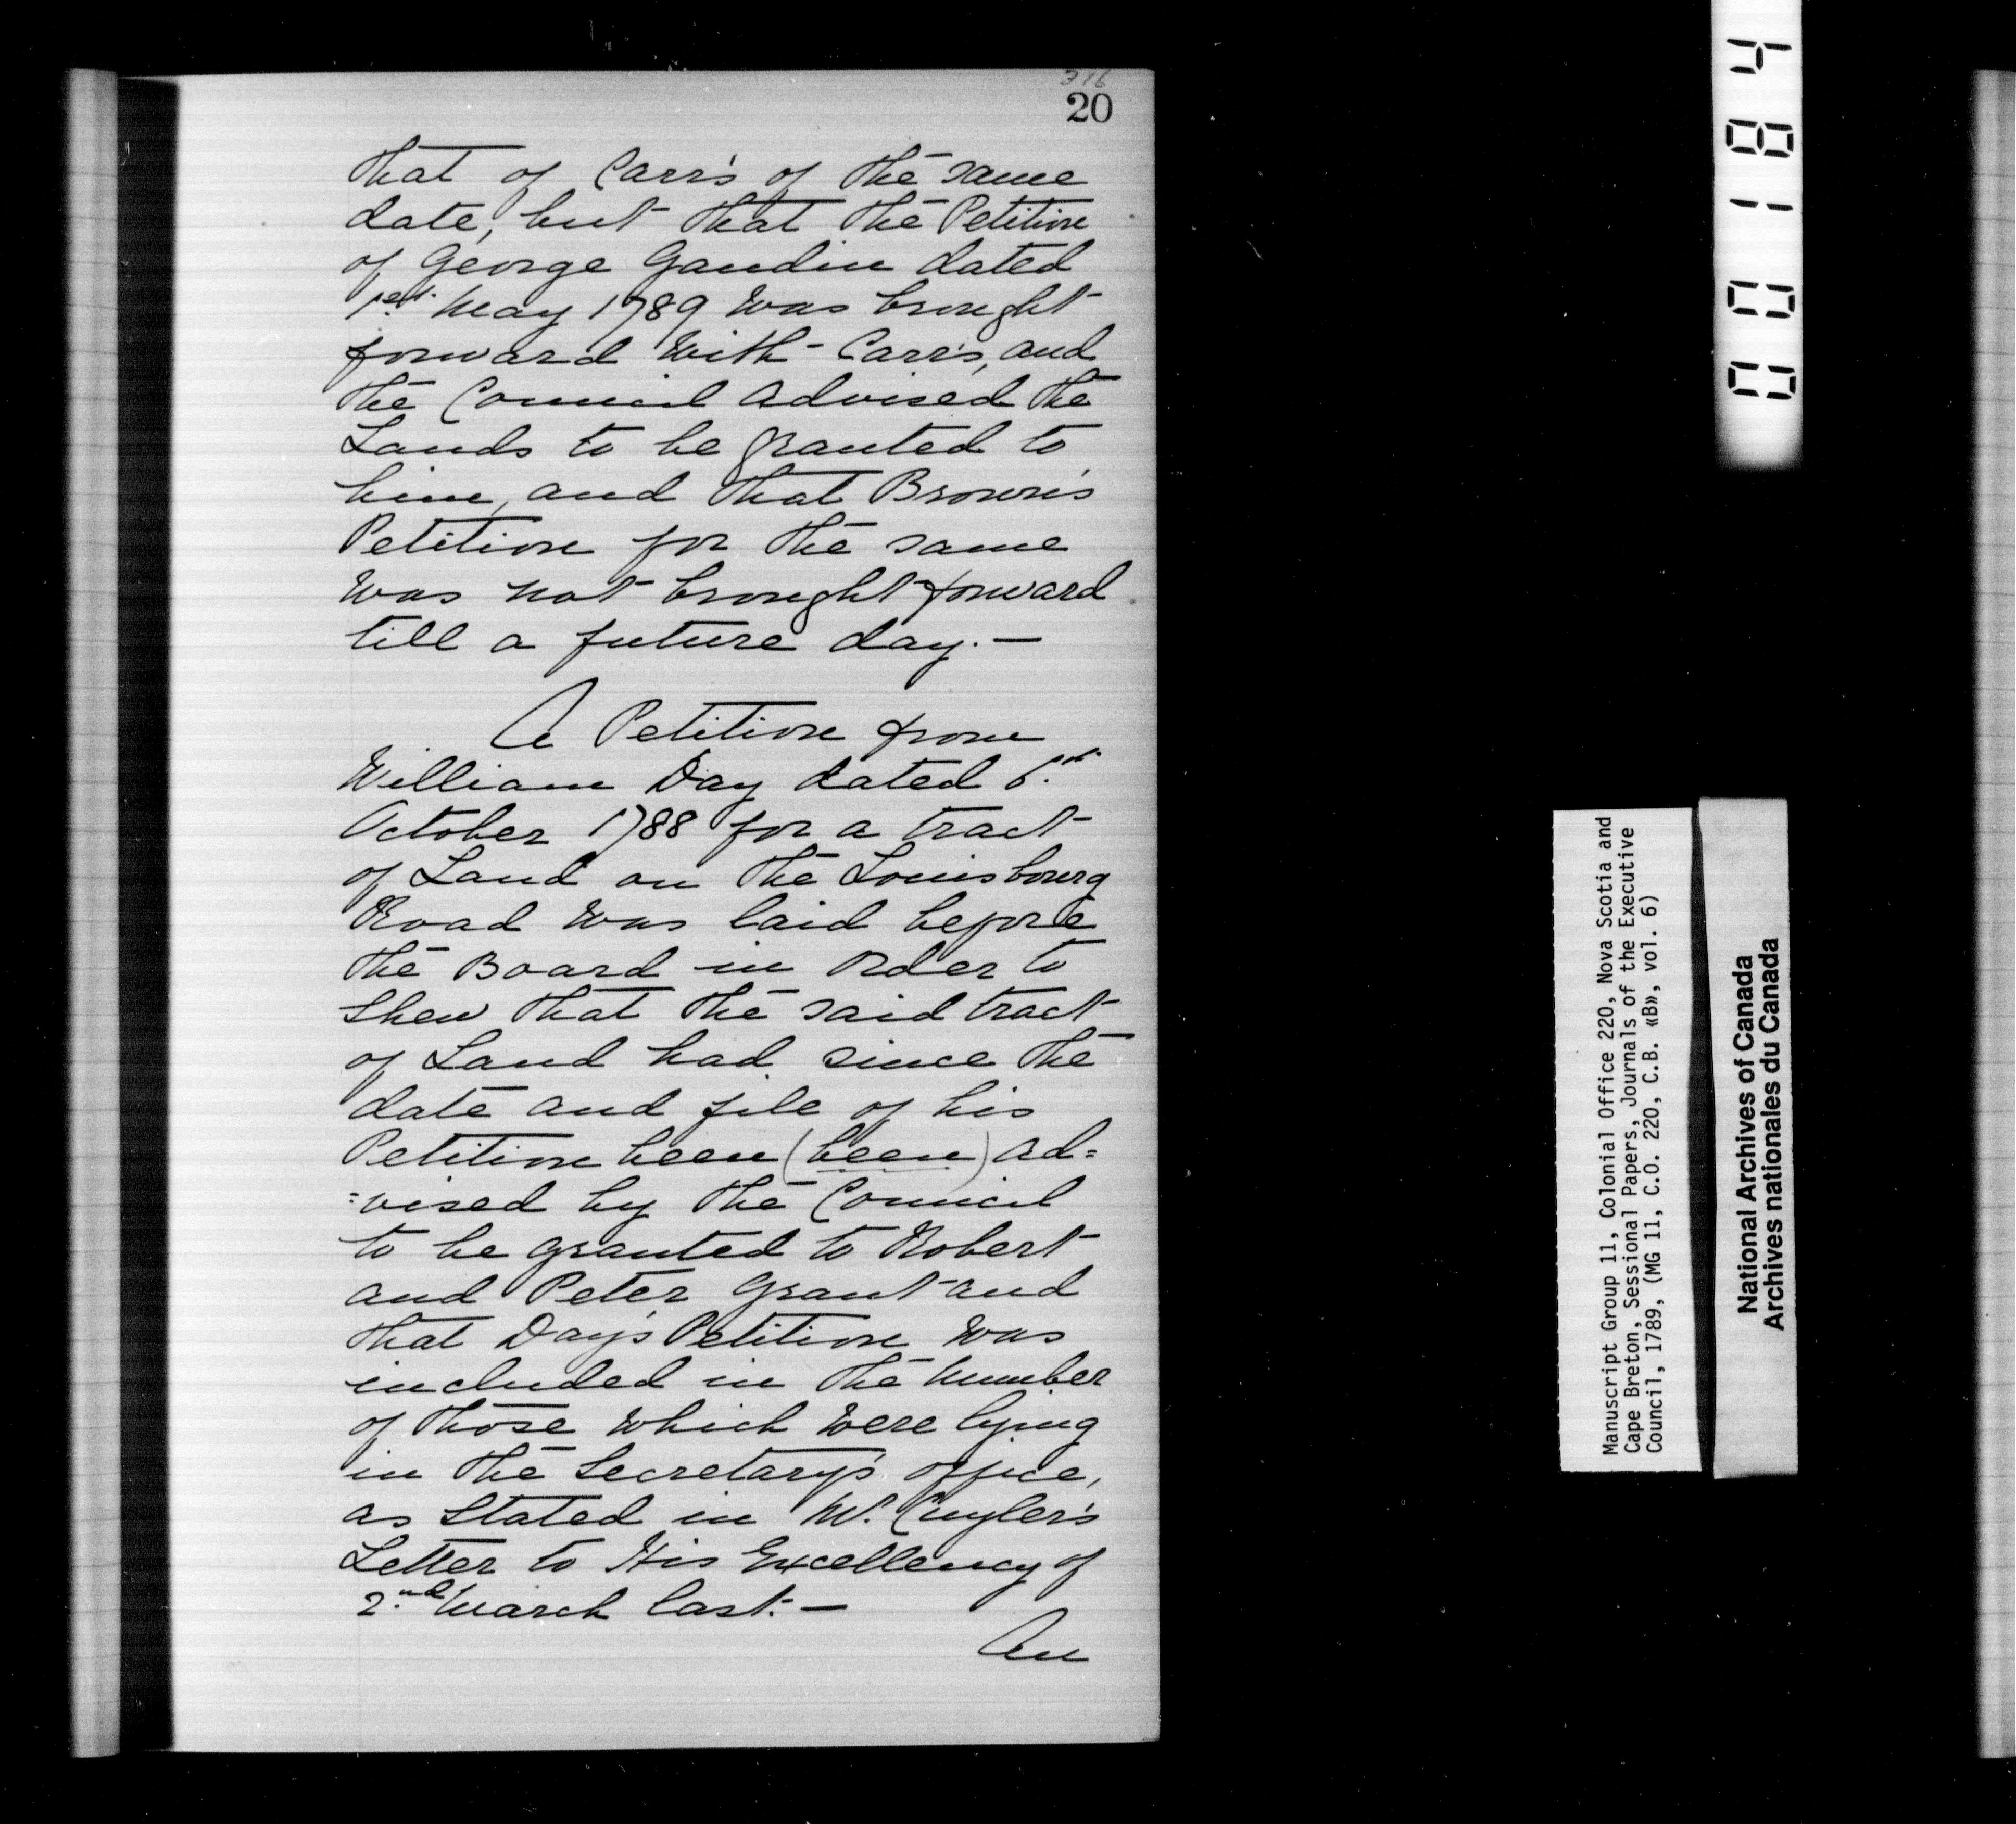 316
20
that of Carr's of the same
date, but that the Petition
of George Gaudin dated
1st. May 1789 was brought
forward with Carr's, and
the Council advised the
Lands to be granted to
him, and that Brown's
Petition for the same
was not brought forward
till a future day.—
A Petition from
William Day dated 6.th
October 1788 for a tract
of Land on the Louisbourg
Road was laid before
the Board in order to
shew that the said tract
of Land had since the
date and file of his
Petition been (been) ad=
=vised by the Council
to be granted to Robert
and Peter Grant and
that Day's Petition was
included in the number
of those which were lying
in the Secretary's office,
as stated in Mr. Cuyler's
Letter to His Excellency of
2.nd March last.—
An
001184
Manuscript Group 11, Colonial Office 220, Nova Scotia and
Cape Breton, Sessional Papers, Journals of the Executive
Council, 1789, (MG 11, C.O. 220, C.B. «B», vol. 6)
National Archives of Canada
Archives nationales du Canada